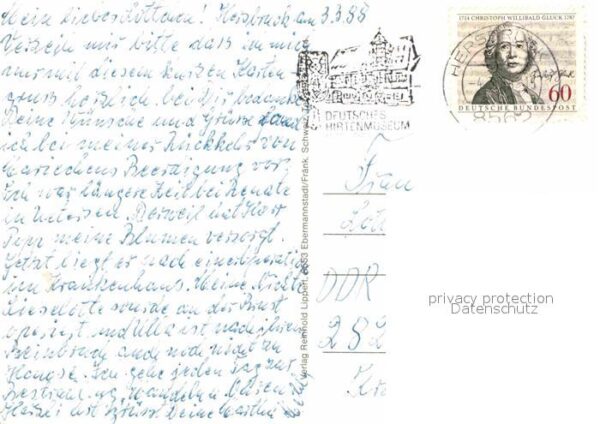 Mein liebes Lottchen! Hersbruck am 3.3.88
Verzeih mir bitte daß ich mich
nur mit diesem kurzen Karten-
gruß herzlich bei Dir bedanke.
Deine Wünsche und Grüße fand
ich bei meiner Rückkehr von
Mariechens Beerdigung vor.
Ich war längere Zeit bei Renate
in Uetersen. Derweil hat Herr
Pepr meine Blumen versorgt.
Jetzt liegt er nach einer Operation
im Krankenhaus. Meine Nichte
Lieselotte wurde an der Brust
operiert, und Ulla ist nach ihrem
Beinbruch auch noch nicht zu
Hause. Ich gehe jeden Tag zur
Bestrahlung,
Herzlichst grüßt Deine Martha
1714 CHRISTOPH WILLIBALD GLUCK 1787
60
DEUTSCHE BUNDESPOST
8562
DEUTSCHES
HIRTENMUSEUM
Verlag Reinhold Lippert, 8553 Ebermannstadt/Fränk. Schweiz
Frau
DDR
282
privacy protection
Datenschutz